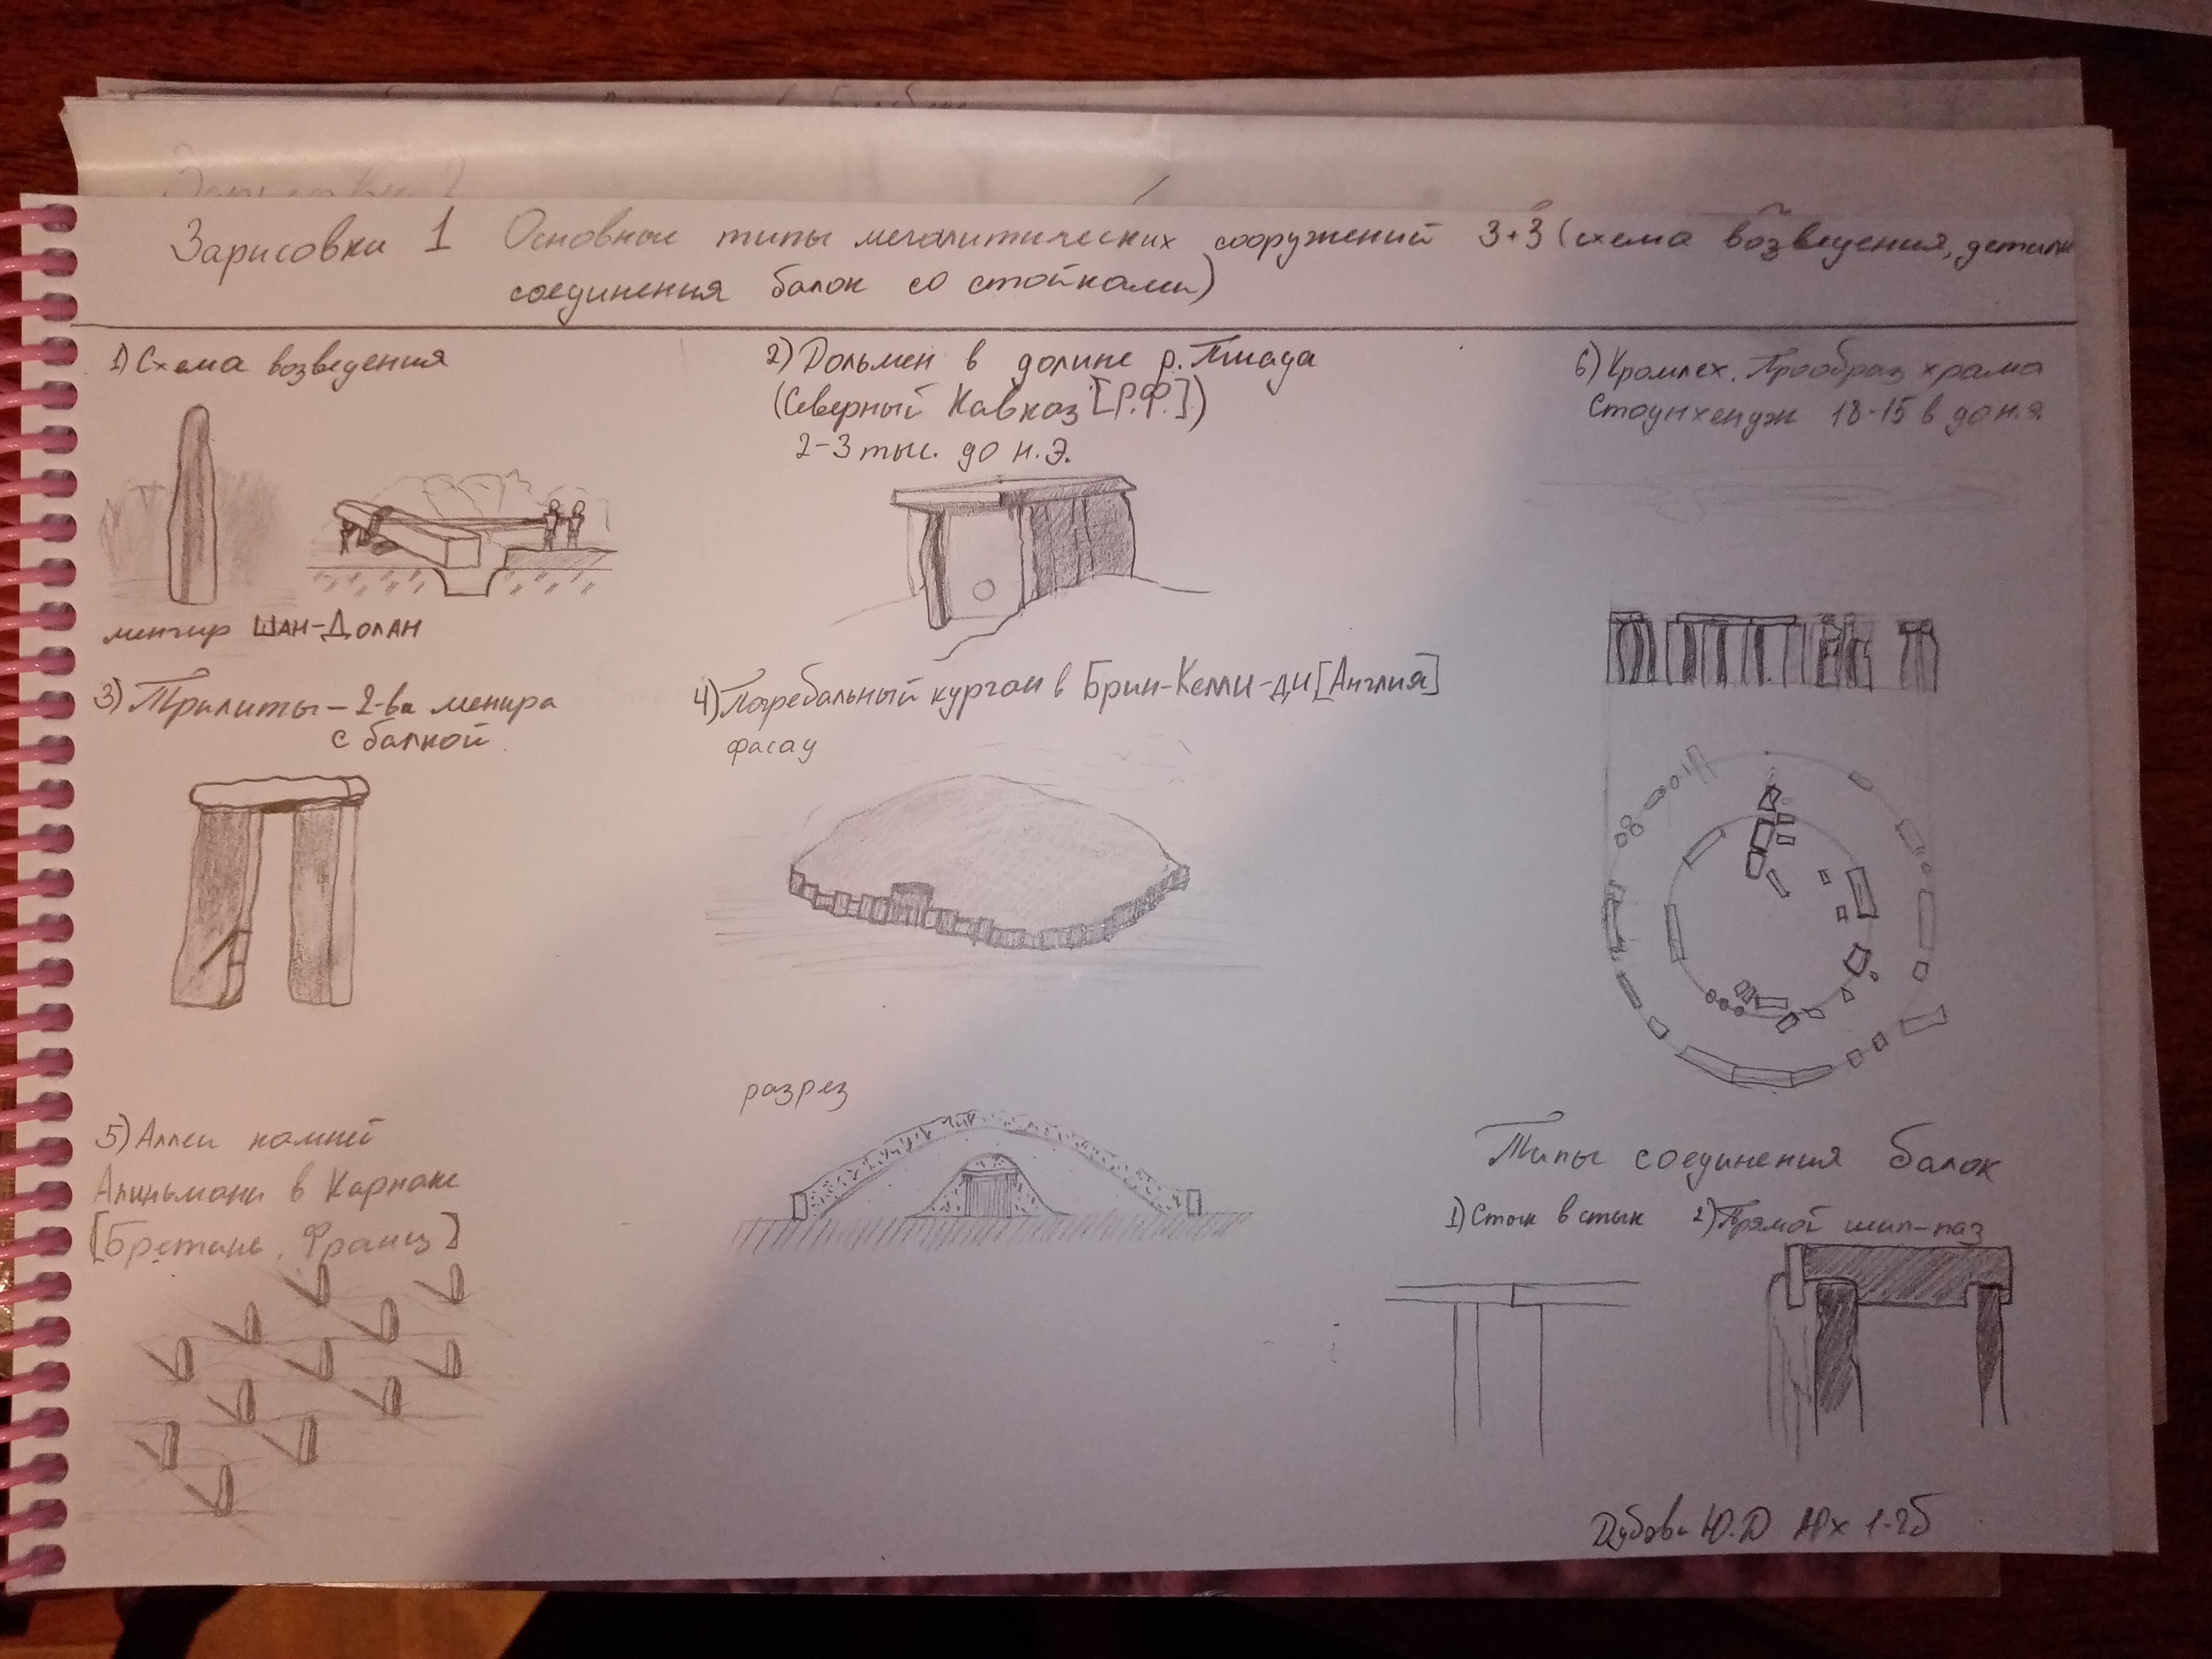 Зарисовки 1 Основные типы мегалитических сооружений 3+3 (схема возведения, детали
соединения балок со стойками)
1) Схема возведения
менгир ШАН-ДОЛАН
2) Дольмен в долине р. Пшада
(Северный Кавказ [Р.Ф.])
2-3 тыс. до н.э.
3) Трилиты - 2-ва менира
с балкой.
4) Погребальный курган в Брин-Келли-ди [Англия]
фасад
разрез
5) Аллеи камней
Алиньманы в Карнаке
[Бретань. Франц]
6) Кромлех. Прообраз храма
Стоунхендж 18-15 в до н.э
Типы соединения балок
1) Стык в стык 2) Прямой шип-паз
Дубова Ю.Д АРх 1-2б